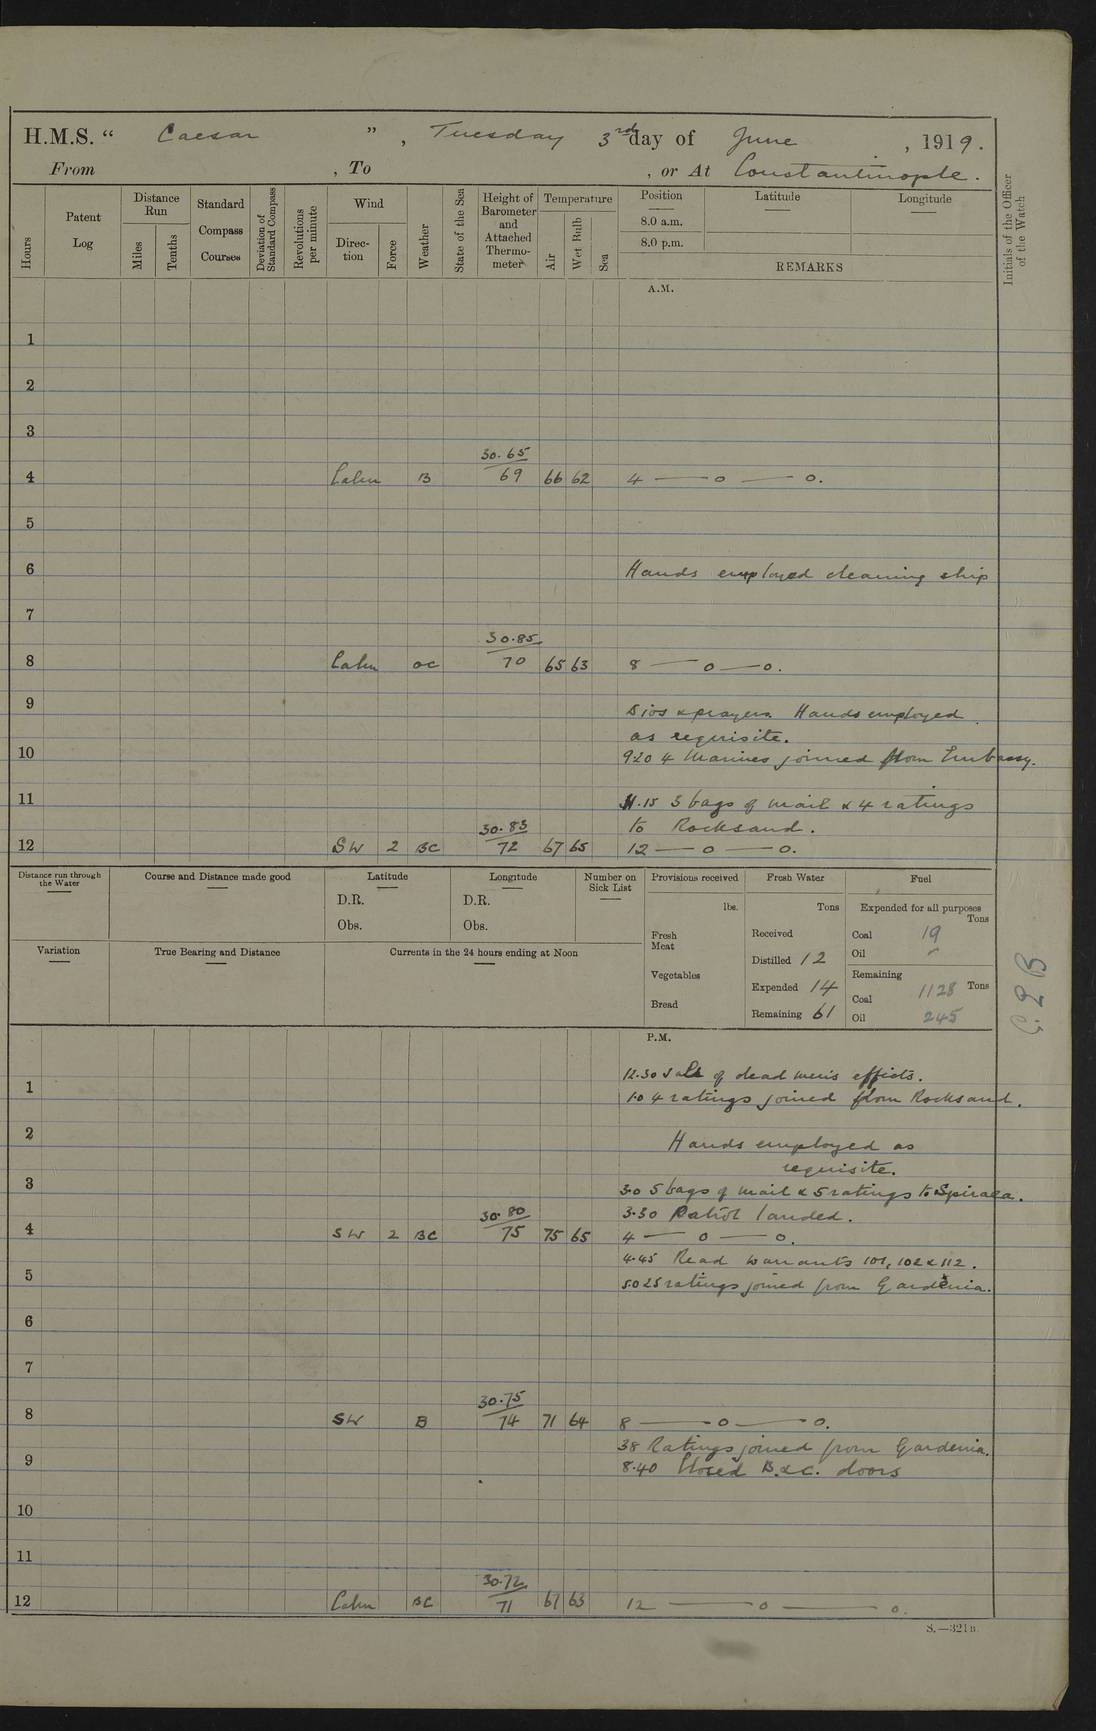 H.M.S. " Caesar ", Tuesday 3rd day of June, 1919.
From , To , or At Constantinople.
Hours
Patent Log
Distance Run
Miles
Tenths
Standard Compass Courses
Deviation of Standard Compass
Revolutions per minute
Wind
Direc-tion
Force
Weather
State of the Sea
Height of Barometer and Attached Thermo-meter
Temperature
Air
Wet Bulb
Sea
Position
8.0 a.m.
8.0 p.m.
Latitude
Longitude
REMARKS
Initials of the Officer of the Watch
A.M.
1
2
3
30.65
4 Calm B 69 66 62 4 — o — o.
5
6 Hands employed cleaning ship
7
30.85
8 Calm oc 70 65 63 8 — o — o.
9 Divs & prayers. Hands employed
as requisite.
10 9.20 4 Marines joined from Embassy.
11 11.15 3 bags of mail & 4 ratings
30.83 to Rocksand.
12 SW 2 BC 72 67 65 12 — o — o.
Distance run through the Water
Course and Distance made good
Latitude
D.R.
Obs.
Longitude
D.R.
Obs.
Number on Sick List
Provisions received
lbs.
Fresh Meat
Vegetables
Bread
Fresh Water
Tons
Received
Distilled 12
Expended 14
Remaining 61
Fuel
Expended for all purposes
Tons
Coal 19
Oil -
Remaining
Tons
Coal 1128
Oil 245
Variation
True Bearing and Distance
Currents in the 24 hours ending at Noon
P.M.
12.30 Sale of dead men's effects.
1 1.0 4 ratings joined from Rocksand.
2 Hands employed as
requisite.
3 3.0 5 bags of mail & 5 ratings to Spiraea.
30.80 3.30 Patrol landed.
4 SW 2 BC 75 75 65 4 — o — o.
4.45 Read warrants 101, 102 & 112.
5 5.0 25 ratings joined from Gardenia.
6
7
30.75
8 SW B 74 71 64 8 — o — o.
38 Ratings joined from Gardenia.
9 8.40 Closed B. & C. doors
10
11
30.72
12 Calm BC 71 67 63 12 — o — o.
S.—321B.